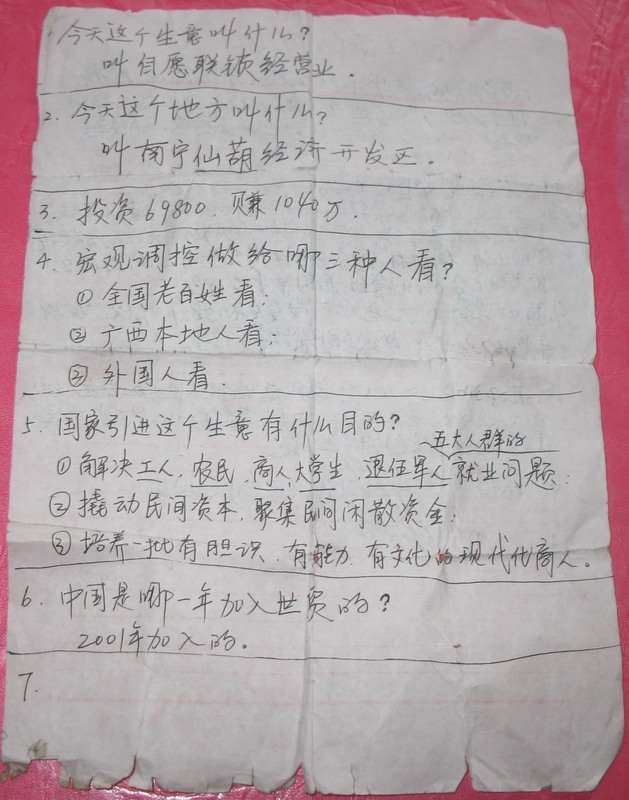 1. 今天这个生意叫什么?
叫自愿联锁经营业.
2. 今天这个地方叫什么?
叫南宁仙葫经济开发区.
3. 投资69800.赚1040万.
4. 宏观调控做给哪三种人看?
① 全国老百姓看;
② 广西本地人看;
③ 外国人看.
5. 国家引进这个生意有什么目的?
五大人群的
①解决工人,农民,商人,大学生,退伍军人就业问题;
②撬动民间资本,聚集民间闲散资金;
③培养一批有胆识,有能力,有文化的现代化商人。
6. 中国是哪一年加入世贸的?
2001年加入的。
7.